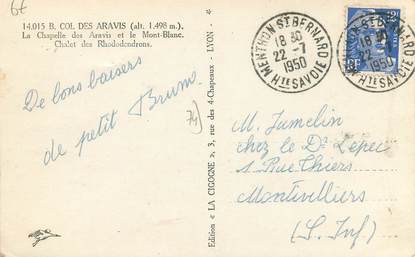 6€
14.015 B. COL DES ARAVIS (alt. 1.498 m.)
La Chapelle des Aravis et le Mont-Blanc.
Chalet des Rhododendrons.
De bons baisers
de petit Bruno.
74)
Edition « LA CIGOGNE », 3, rue des 4-Chapeaux - LYON -
MENTHON ST BERNARD
18 30
22 - 7
1950
HTE SAVOIE
ST BERNARD
18 30
1950
HTE SAVOIE
M. Jumelin
chez le Dr Lepec
1 Rue Thiers
Montivilliers
(S. Inf)